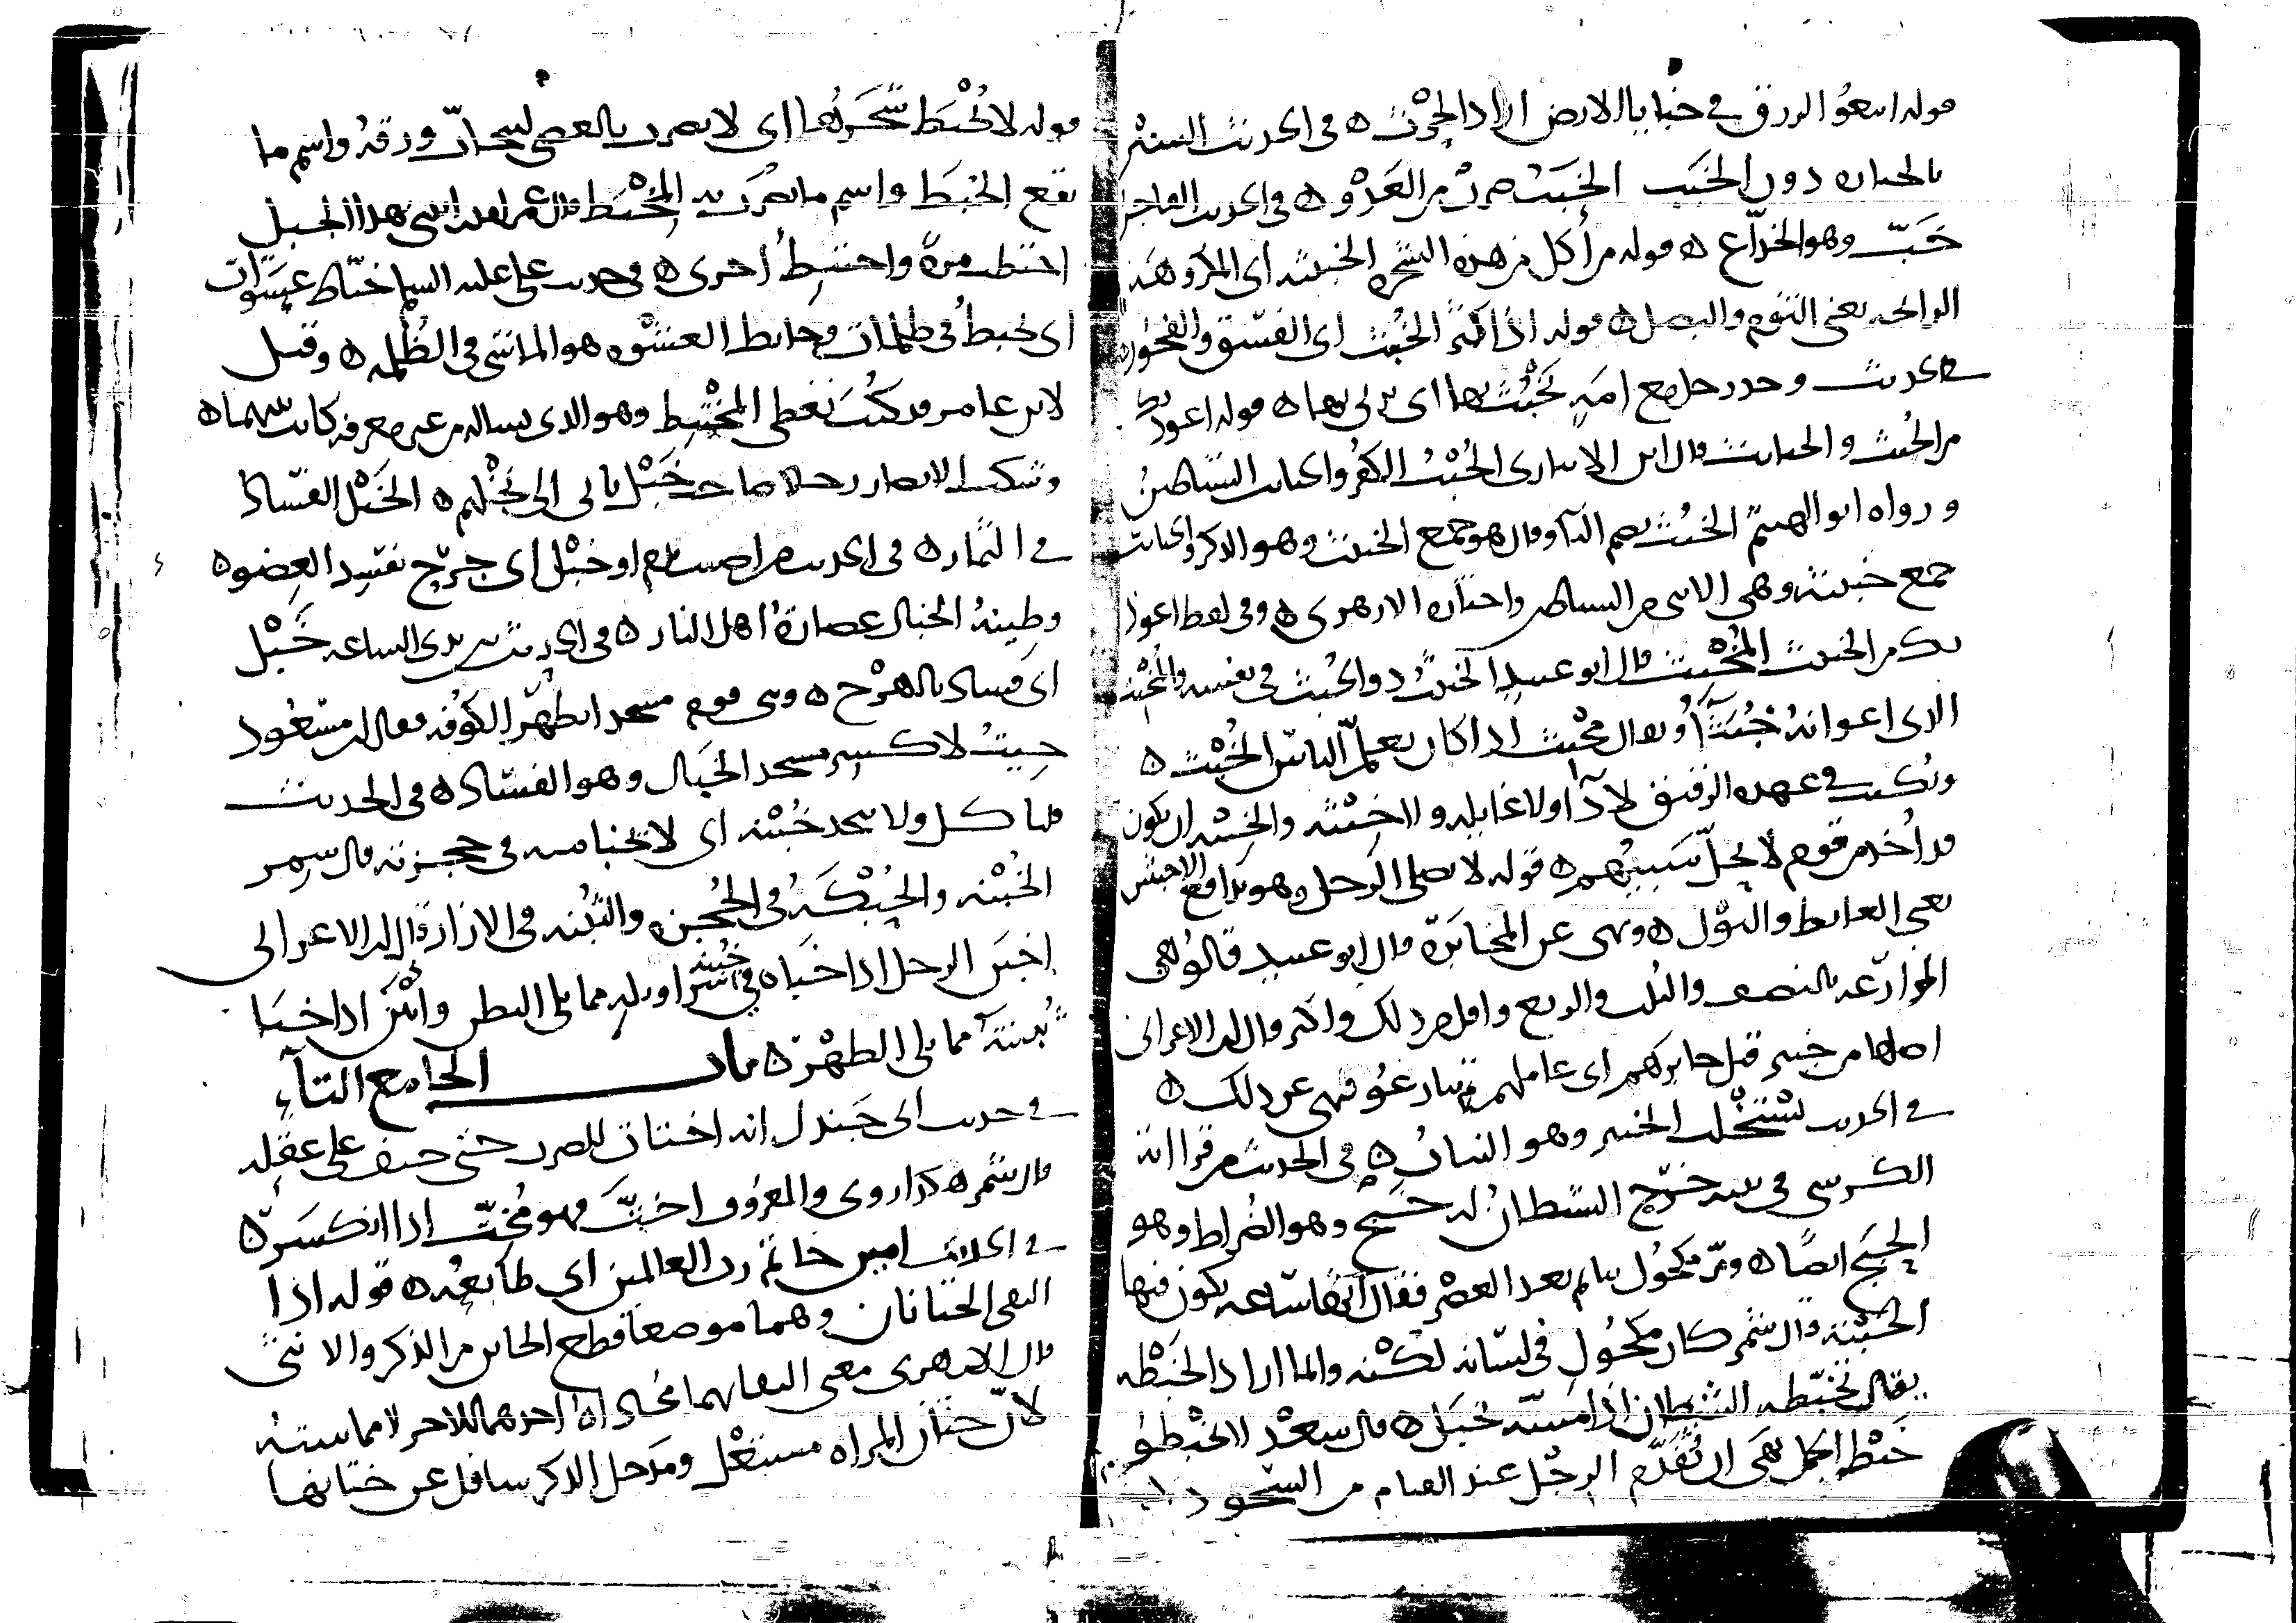 قوله ابتغوا الرزق في خبايا الارض اراد الحرث ه في الحديث السير
بالجنازه دون الخبب الخبب ضرب من العدو ه وفي الحديث الفاجر
خب وهو الخداع ه قوله من أكل من هذه الشجره الخبيثه أي المكروهه
الرائحه يعني الثوم والبصل ه قوله اذا كثر الخبث أي الفسق والفجور ه
في الحديث وجد رجل مع امه يخبث بها اي يزني بها ه قوله اعوذ بك
من الخبث والخبائث قال ابن الانباري الخبث الكفر والخبائث الشياطين
ورواه ابو الهيثم الخبث بضم الباء وقال هو جمع الخبيث وهو الذكر والخبائث
جمع خبيثه وهي الانثى من الشياطين واختاره الازهري ه وفي لفظ اعوذ
بك من الخبيث المخبث قال ابو عبيد الخبيث ذو الخبث في نفسه والمخبث
الذي اعوانه خبثاء ويقال مخبث اذا كان يعلم الناس الخبث ه
وكتب في عهده الرقيق لا داء ولا غايله ولا خبثه والخبثه ان يكون
قد أخذ من قوم لا يحل سبيهم ه قوله لا يصلي الرجل وهو يدافع الاخبثين
يعني الغايط والبول ه ونهى عن المخابره قال ابو عبيد قالوا هي
المزارعه بالنصف والثلث والربع واقل من ذلك واكثر وقال ابن الاعرابي
اصلها من خيبر قيل خابرهم اي عاملهم فتنازعوا فنهى عن ذلك ه
في الحديث نستخلب الخبير وهو النبات ه في الحديث من قرا ايه
الكرسي في بيته خرج الشيطان له خبج وهو الضراط وهو
الحبج ايضا ه ومر مكحول بنايم بعد العصر فقال انها ساعه يكون فيها
الخبته قال شمر كان مكحول في لسانه لكنه وانما اراد الخبطه
يقال تخبطه الشيطان اذا مسه بخبل ه قال سعد لا تخبطوا
خبط الجمل نهى ان تقدم الرجل عند القيام من السجود
قوله لا يخبط شجرها اي لا يضرب بالعصى ليتحات ورقه واسم ما
يقع الخبط واسم ما يضرب به المخبط قال عمر لقد رايتني بهذا الجبل
احتطب مرة واختبط أخرى ه في حديث علي عليه السلم خباط عشوات
اي يخبط في ظلمات وخابط العشوه هو الماشي في الظلمه ه وقيل
لابن عامر قد كنت تعطي المختبط وهو الذي يساله من غير معرفه كانت بينهما ه
وشكت الانصار رجلا صاحب خبل ياتي الى نخلهم ه الخبل الفساد
في الثمار ه في الحديث من اصيب بدم او خبل اي جرح يفسد العضو ه
وطينة الخبال عصارة أهل النار ه في الحديث بين يدي الساعه خبل
اي فساد بالهرج ه وبنى قوم مسجدا بظهر الكوفه فقال ابن مسعود
جيت لاكسر مسجد الخبال وهو الفساد ه في الحديث
فلياكل ولا يتخذ خبنه اي لا يخبا منه في حجزته قال شمر
الخبنه والحبكه في الحجزه والثبنه في الازار وقال ابن الاعرابي
اخبن الرجل اذا خبا في خبنه سراويله مما يلي البطن واثبن اذا خبا
في ثبنته مما يلي الظهر ه باب الخاء مع التاء
في حديث ابي جندل انه اختات للضرب حتى خيف على عقله
قال شمر ه كذا روي والمعروف اخت فهو مخت اذا انكسر ه
في الحديث امين خاتم رب العالمين اي طابعه ه قوله اذا
التقى الختانان وهما موضعا قطع الخاتن من الذكر والانثى
قال الازهري معنى التقايهما محاذاة احدهما للاخر لا مماسته
لان ختان المراه مستعل ومدخل الذكر سافل عن ختانها